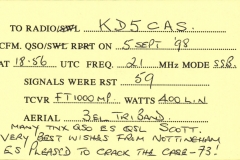 TO RADIO/SWL KD5CAS
CFM. QSO/SWL RPRT ON 5 SEPT '98
AT 18:56 UTC FREQ. 21 MHz MODE SSB.
SIGNALS WERE RST 59
TCVR FT1000MP WATTS 400 LIN
AERIAL 3EL TRIBAND.
MANY TNX QSO ES QSL SCOTT.
VERY BEST WISHES FROM NOTTINGHAM
ES PLEASED TO CRACK THE CASE-73!